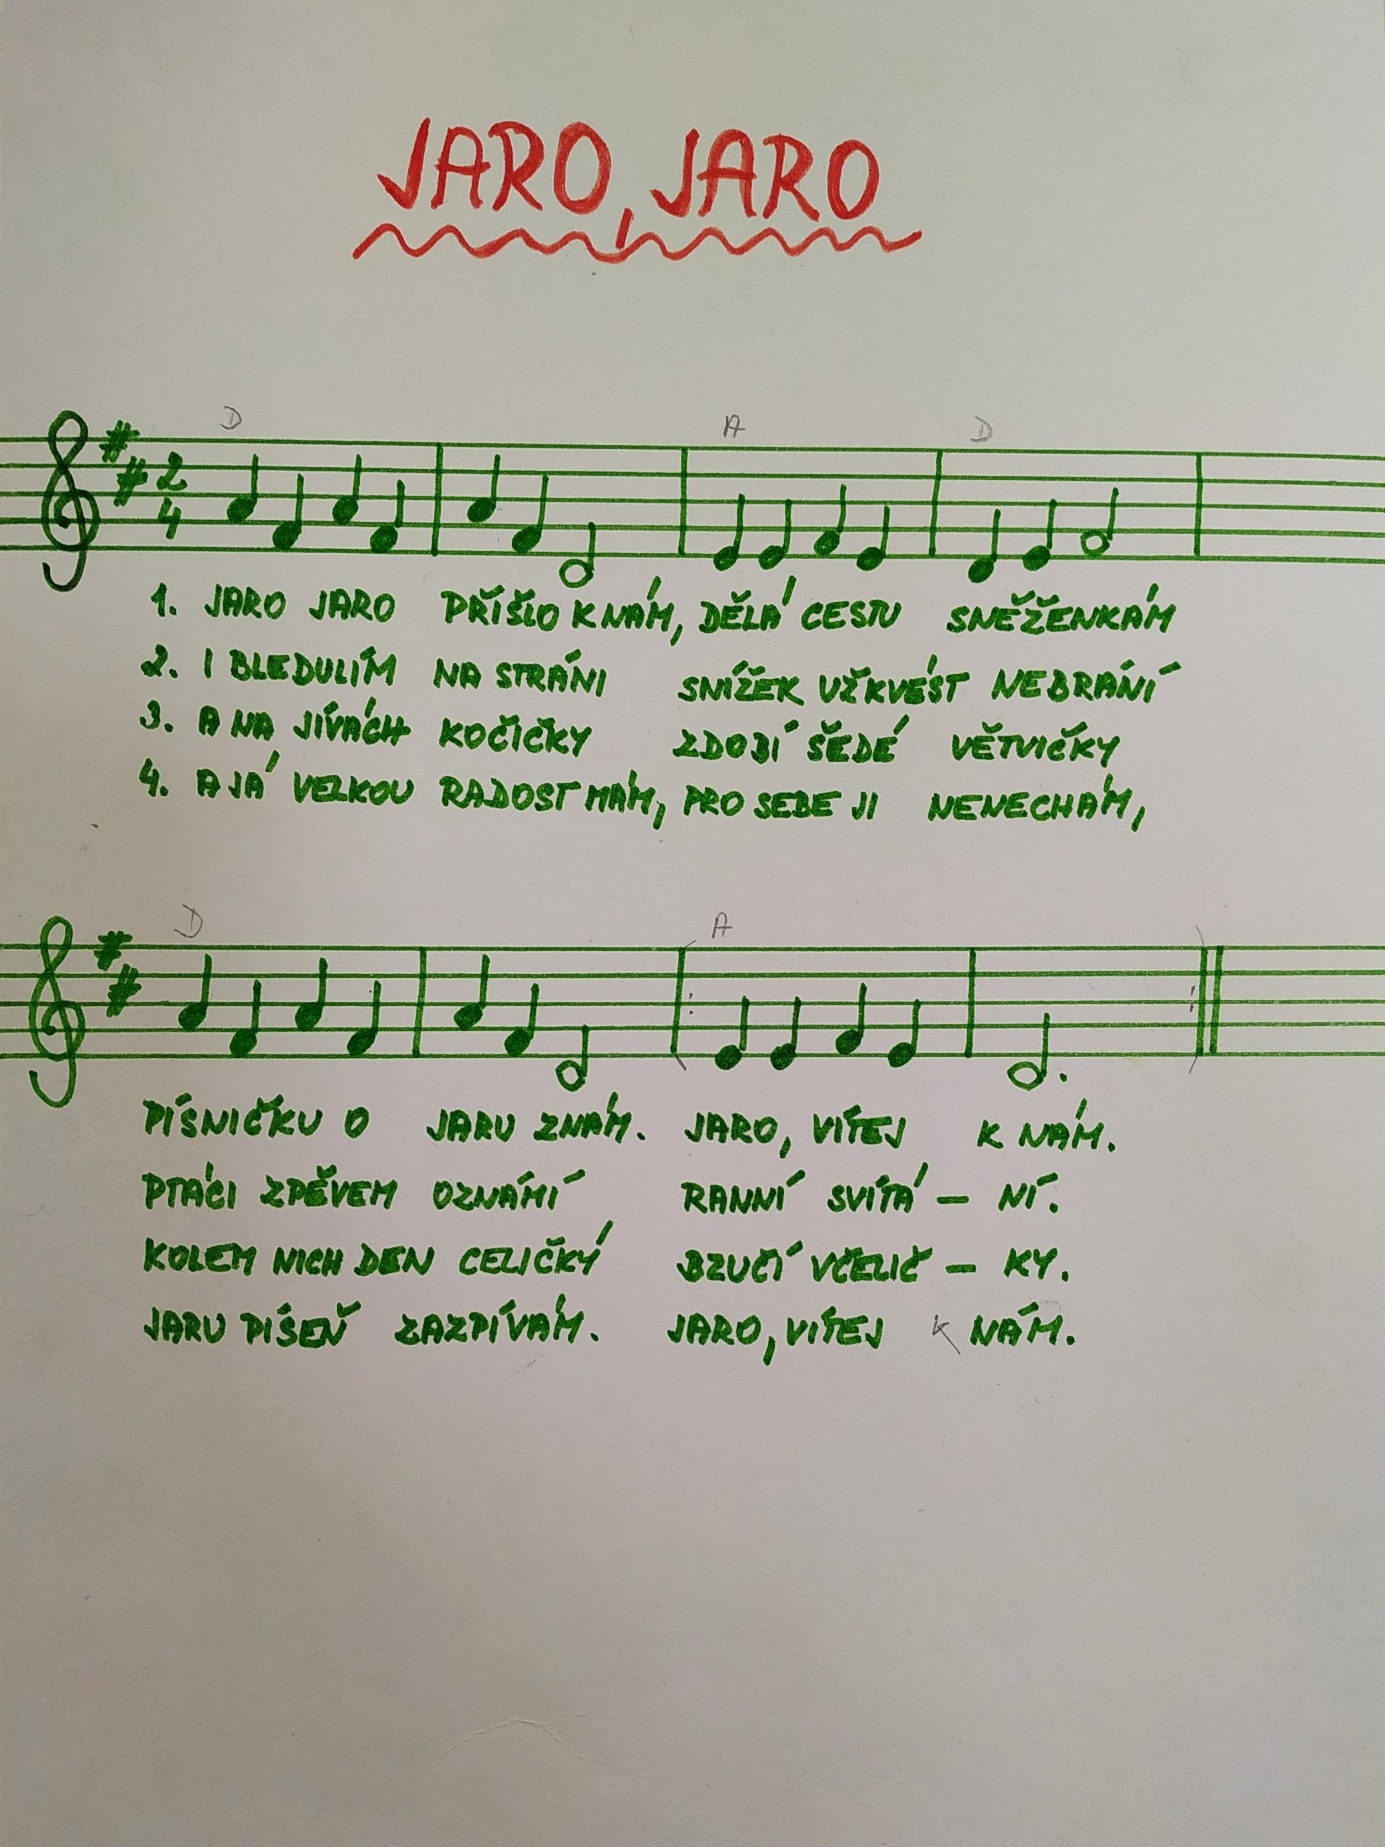 JARO, JARO
D A D
2
4
1. JARO JARO PŘIŠLO K NÁM, DĚLÁ CESTU SNĚŽENKÁM
2. I BLEDULÍM NA STRÁNI SNÍŽEK UŽ KVÉST NEBRÁNÍ
3. A NA JÍVÁCH KOČIČKY ZDOBÍ ŠEDÉ VĚTVIČKY
4. A JÁ VELKOU RADOST MÁM, PRO SEBE JI NENECHÁM,
D A
PÍSNIČKU O JARU ZNÁM. JARO, VÍTEJ K NÁM.
PTÁCI ZPĚVEM OZNÁMÍ RANNÍ SVÍTÁ – NÍ.
KOLEM NICH DEN CELIČKÝ BZUČÍ VČELIČ – KY.
JARU PÍSEŇ ZAZPÍVÁM. JARO, VÍTEJ K NÁM.